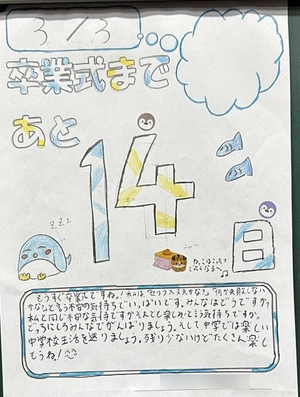 3/3
卒業式まで
あと
14
日
zzz
もうすぐ卒業式ですね。!私は「セリフ大丈夫かな?」「何か失敗しない
かな」など言う不安の気持ちでいっぱいです。みんなはどうですか?
私と同じ不安な気持ですか?それとも楽しみという気持ちですか。
どっちにしろみんなでがんばりましょう。そして中学では楽しい
中学校生活を送りましょう。残り少ないけどたくさん楽し
もうね!